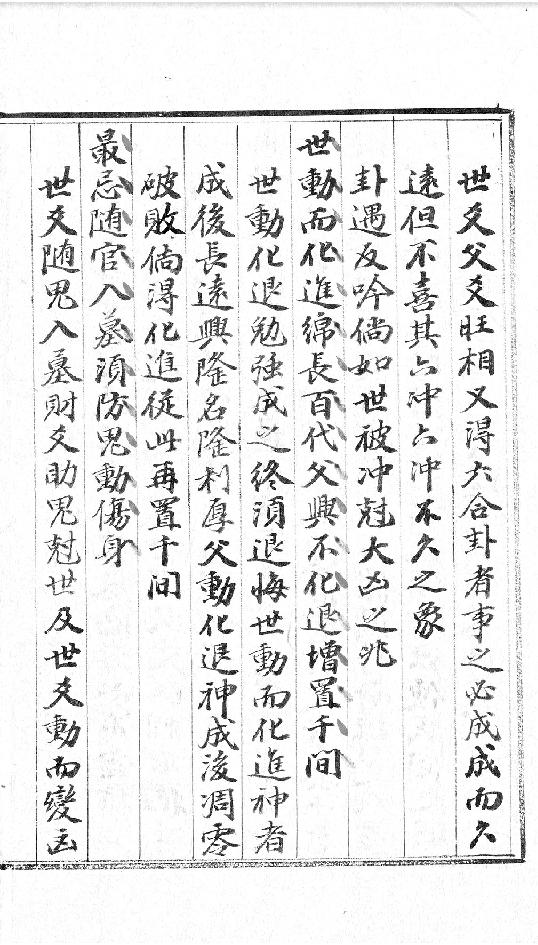 世爻父爻旺相又得六合卦者事之必成成而久
遠但不喜其六冲六冲不久之象
卦遇反吟倘如世被冲尅大凶之兆
世動而化進綿長百代父興不化退增置千间
世動化退勉强成之終須退悔世動而化進神者
成後長遠興隆名隆利厚父動化退神成後凋零
破敗倘得化進從此再置千间
最忌随官入墓須防鬼動傷身
世爻随鬼入墓財爻助鬼尅世及世爻動而變凶